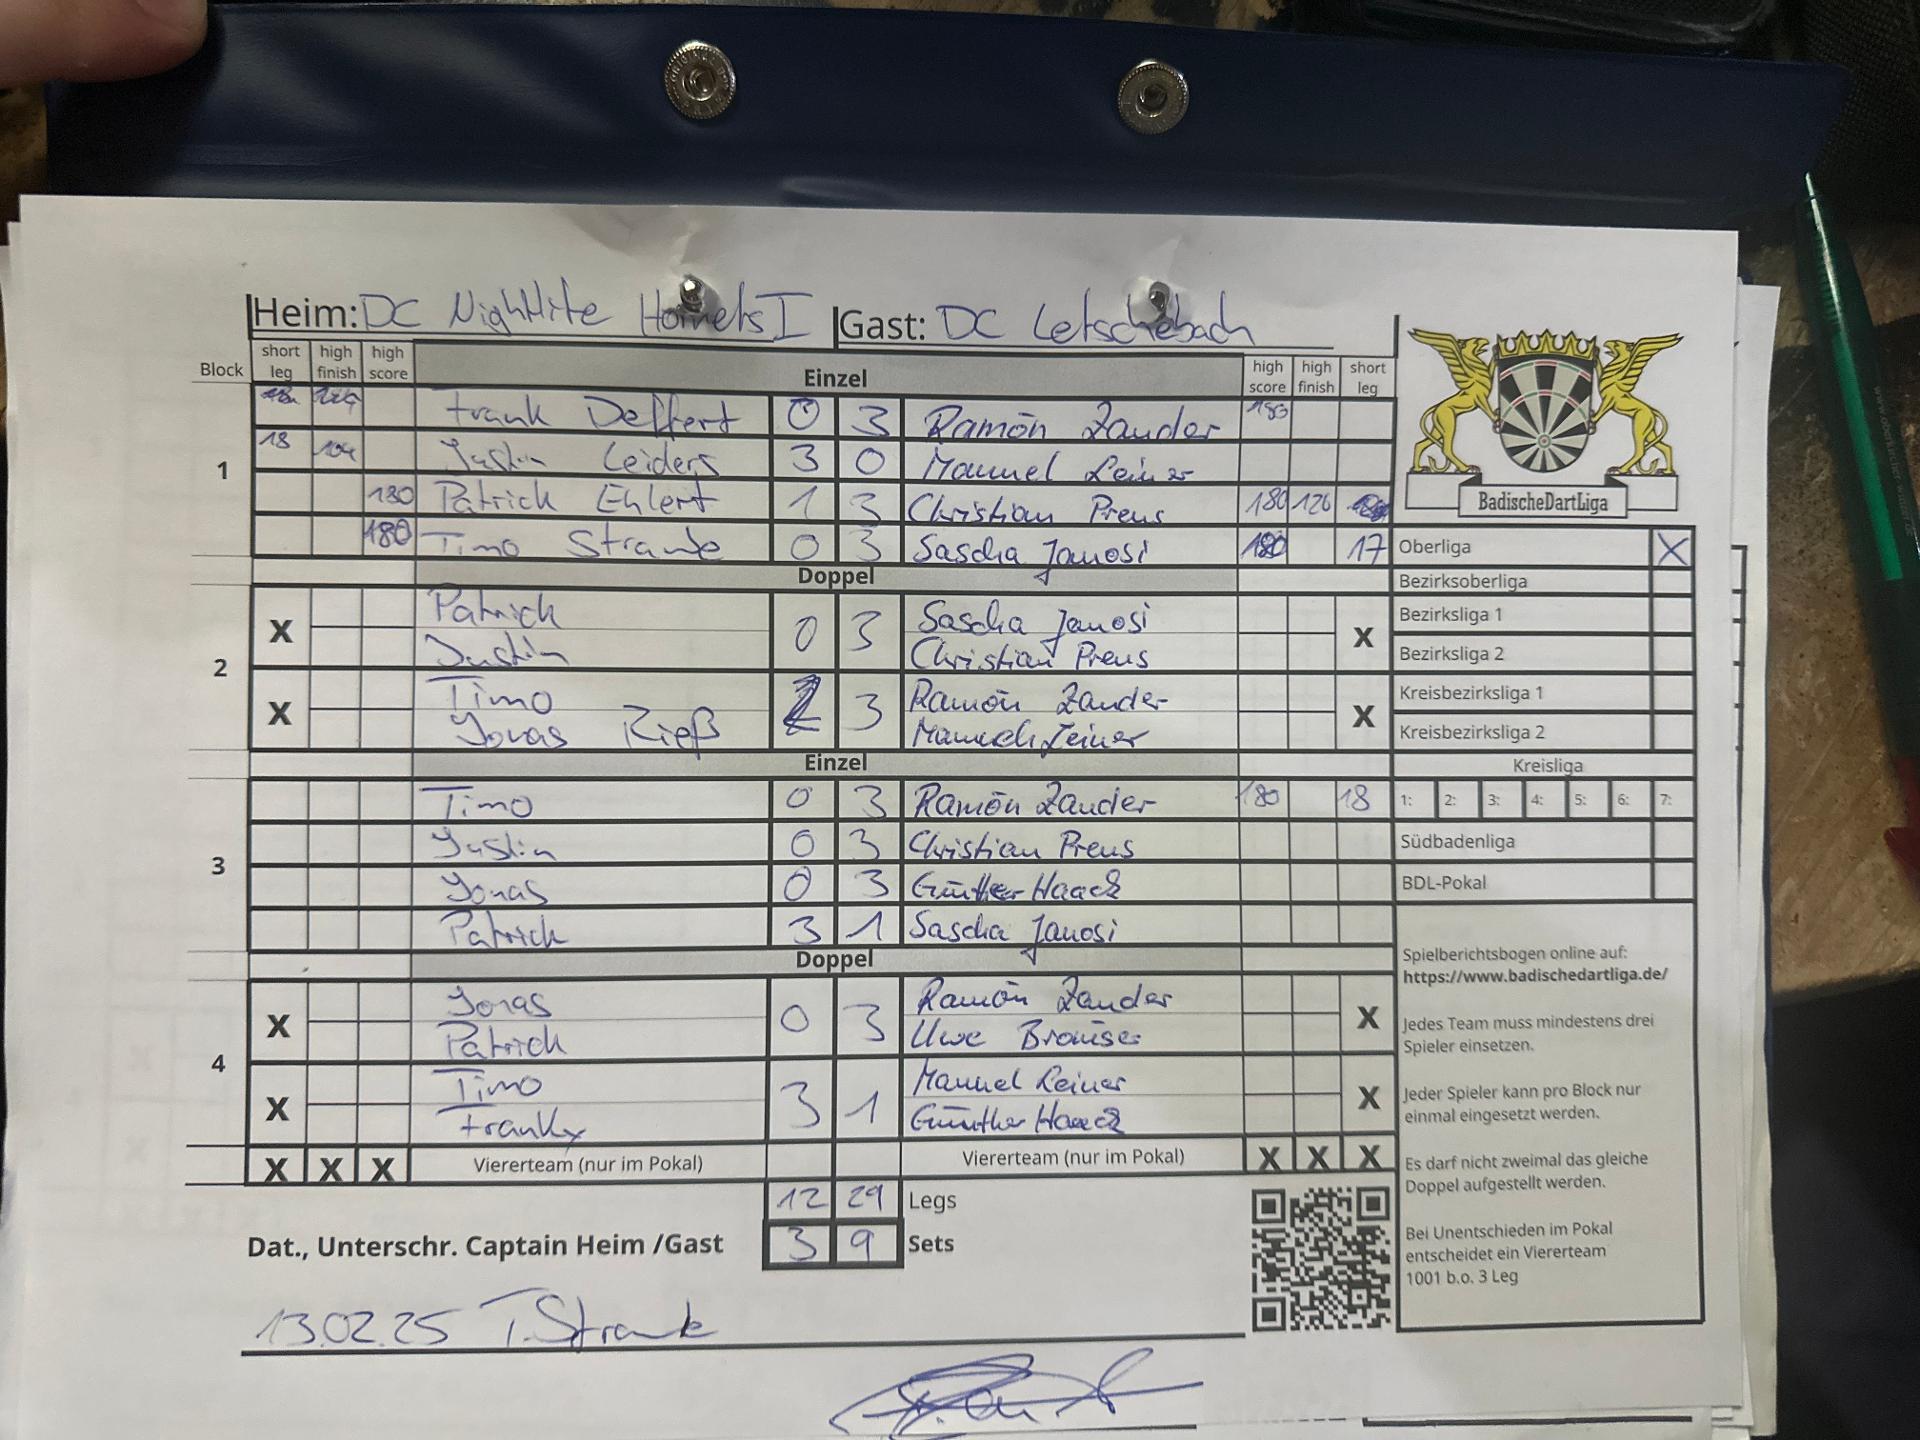 Heim: DC Nightlite Hornets I Gast: DC Letschebach
Block short leg high finish high score Einzel high score high finish short leg
Frank Deffert 0 3 Ramōn Zander 180
1 18 104 Justin Leiders 3 0 Manuel Leiner
180 Patrick Ehlert 1 3 Christian Preus 180 126
180 Timo Straube 0 3 Sascha Janosi 180 17
Doppel
2
X Patrick 0 3 Sascha Janosi X
Justin Christian Preus
X Timo 2 3 Ramōn Zander X
Jonas Rieß Manuel Leiner
Einzel
3
Timo 0 3 Ramōn Zander 180 18
Justin 0 3 Christian Preus
Jonas 0 3 Günther Haack
Patrick 3 1 Sascha Janosi
Doppel
4
X Jonas 0 3 Ramōn Zander X
Patrick Uwe
X Timo 3 1 Manuel Leiner X
Franky Günther Haack
X X X Viererteam (nur im Pokal) Viererteam (nur im Pokal) X X X
12 29 Legs
Dat., Unterschr. Captain Heim /Gast 3 9 Sets
13.02.25 T. Straube
BadischeDartLiga
Oberliga X
Bezirksoberliga
Bezirksliga 1
Bezirksliga 2
Kreisbezirksliga 1
Kreisbezirksliga 2
Kreisliga
1: 2: 3: 4: 5: 6: 7:
Südbadenliga
BDL-Pokal
Spielberichtsbogen online auf:
https://www.badischedartliga.de/
Jedes Team muss mindestens drei
Spieler einsetzen.
Jeder Spieler kann pro Block nur
einmal eingesetzt werden.
Es darf nicht zweimal das gleiche
Doppel aufgestellt werden.
Bei Unentschieden im Pokal
entscheidet ein Viererteam
1001 b.o. 3 Leg